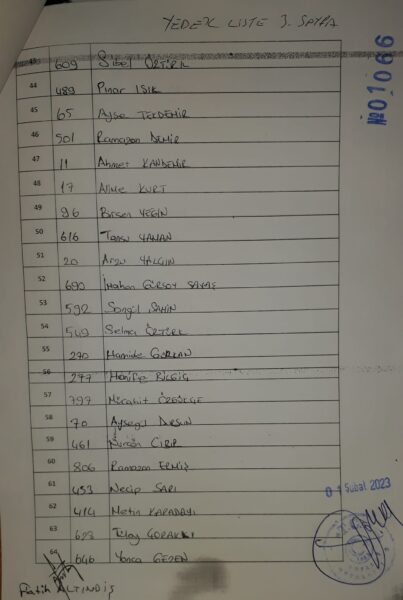 YEDEK LİSTE 3. SAYFA
№01066
43 609 Sibel ÖZTÜRK
44 489 Pınar IŞIK
45 65 Ayşe TEKDEMİR
46 501 Ramazan DEMİR
47 11 Ahmet KANDEMİR
48 17 Alime KURT
49 96 Birsen YEGİN
50 616 Tansu YAMAN
51 20 Arzu YALGIN
52 690 GÜRSOY SAVAŞ
53 592 Songül ŞAHİN
54 549 Selma ÖZTÜRK
55 270 Hamide GÜRKAN
56 277 Hanife BİLGİÇ
57 797 Mücahit
58 70 Ayşegül DURSUN
59 461 Nurcan
60 806 Ramazan ERMİŞ
61 453 Necip SARI
62 414 Metin KARADAYI
63 623 Tülay
64 646 Yonca GEZEN
01 Şubat 2023
Fatih ALTINDİŞ